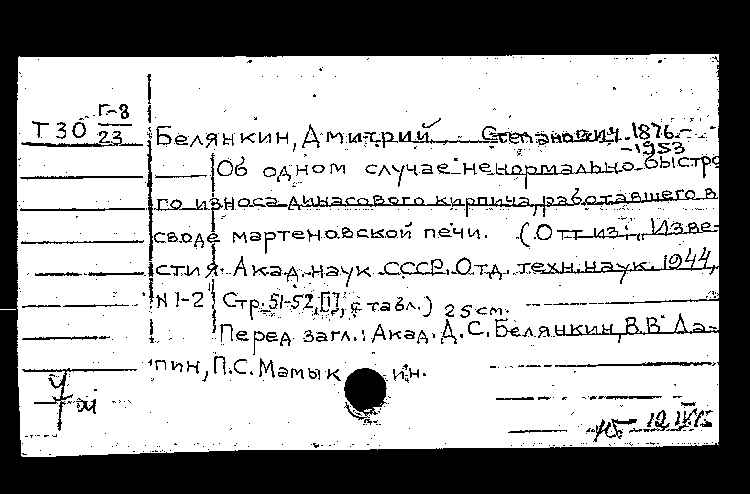 Т 30 Г-8
23
Белянкин, Дмитрий Степанович 1876-
-1953
Об одном случае ненормально быстро
го износа динасового кирпича, работавшего в
своде мартеновской печи. (Отт. из: „Изве-
стия Акад. наук СССР. Отд. техн. наук. 1944,
N 1-2 Стр. 51-52, [1], с табл.) 25 см.
Перед загл.: Акад. Д. С. Белянкин, В. В. Ла-
пин, П. С. Мамыкин.